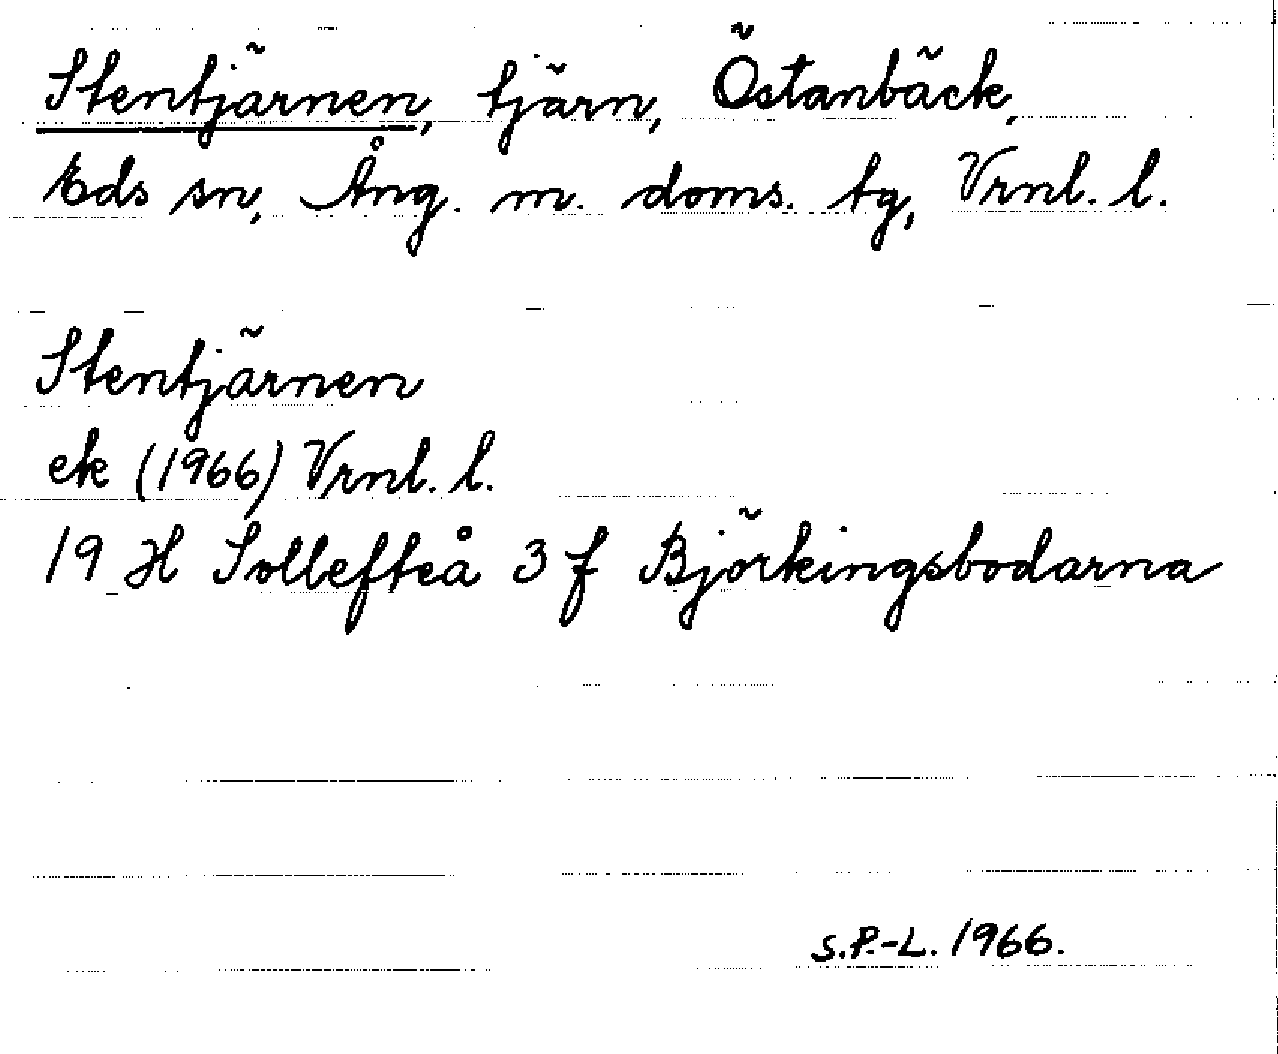 Stentjärnen, tjärn, Östanbäck,
Eds sn, Ång. m. doms. tg, Vrnl. l.
Stentjärnen
ek (1966) Vrnl. l.
19 H Sollefteå 3 f Björkingsbodarna
S.P.-L. 1966.